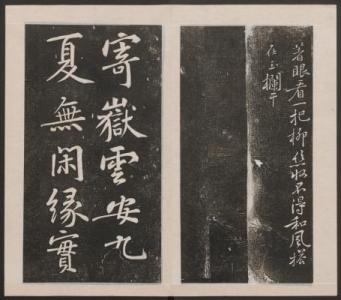 著眼看一把柳絲收不得和風搭
在玉欄干
寄嶽雲安九
夏無閑緣實